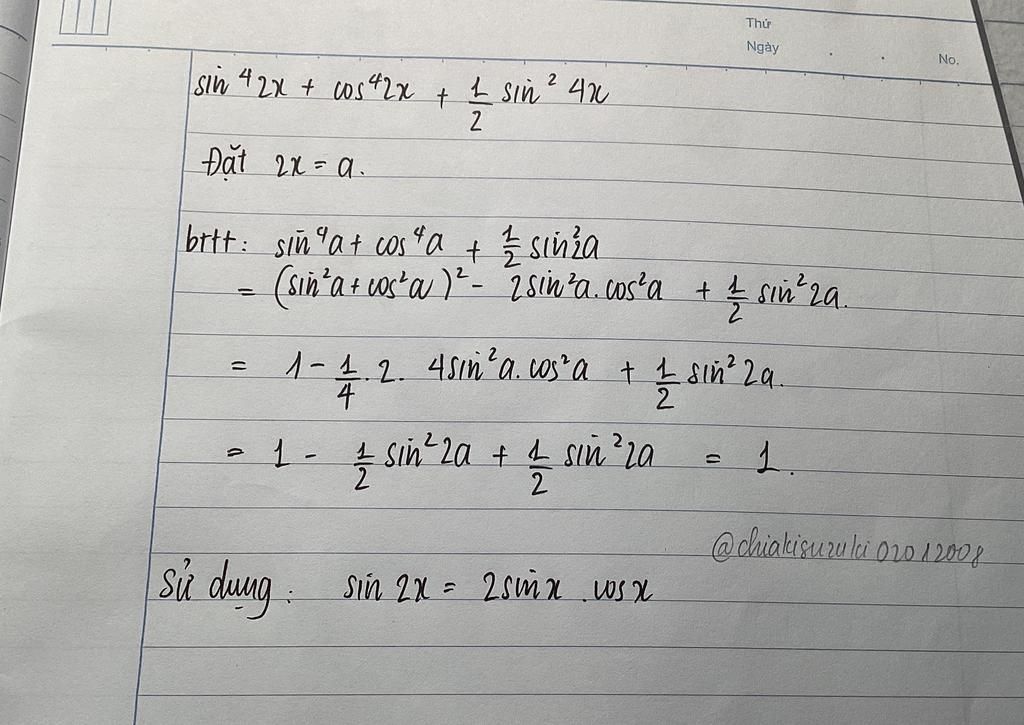 Thứ
Ngày . . No.
sin⁴2x + cos⁴2x + 1/2 sin² 4x
Đặt 2x = a.
brtt: sin⁴a + cos⁴a + 1/2 sin²2a
= (sin²a + cos²a)² - 2sin²a.cos²a + 1/2 sin²2a.
= 1 - 1/4 . 2. 4sin²a.cos²a + 1/2 sin²2a.
= 1 - 1/2 sin²2a + 1/2 sin²2a = 1.
@chiakisuzuki02012008
Sử dụng: sin 2x = 2sinx .cosx